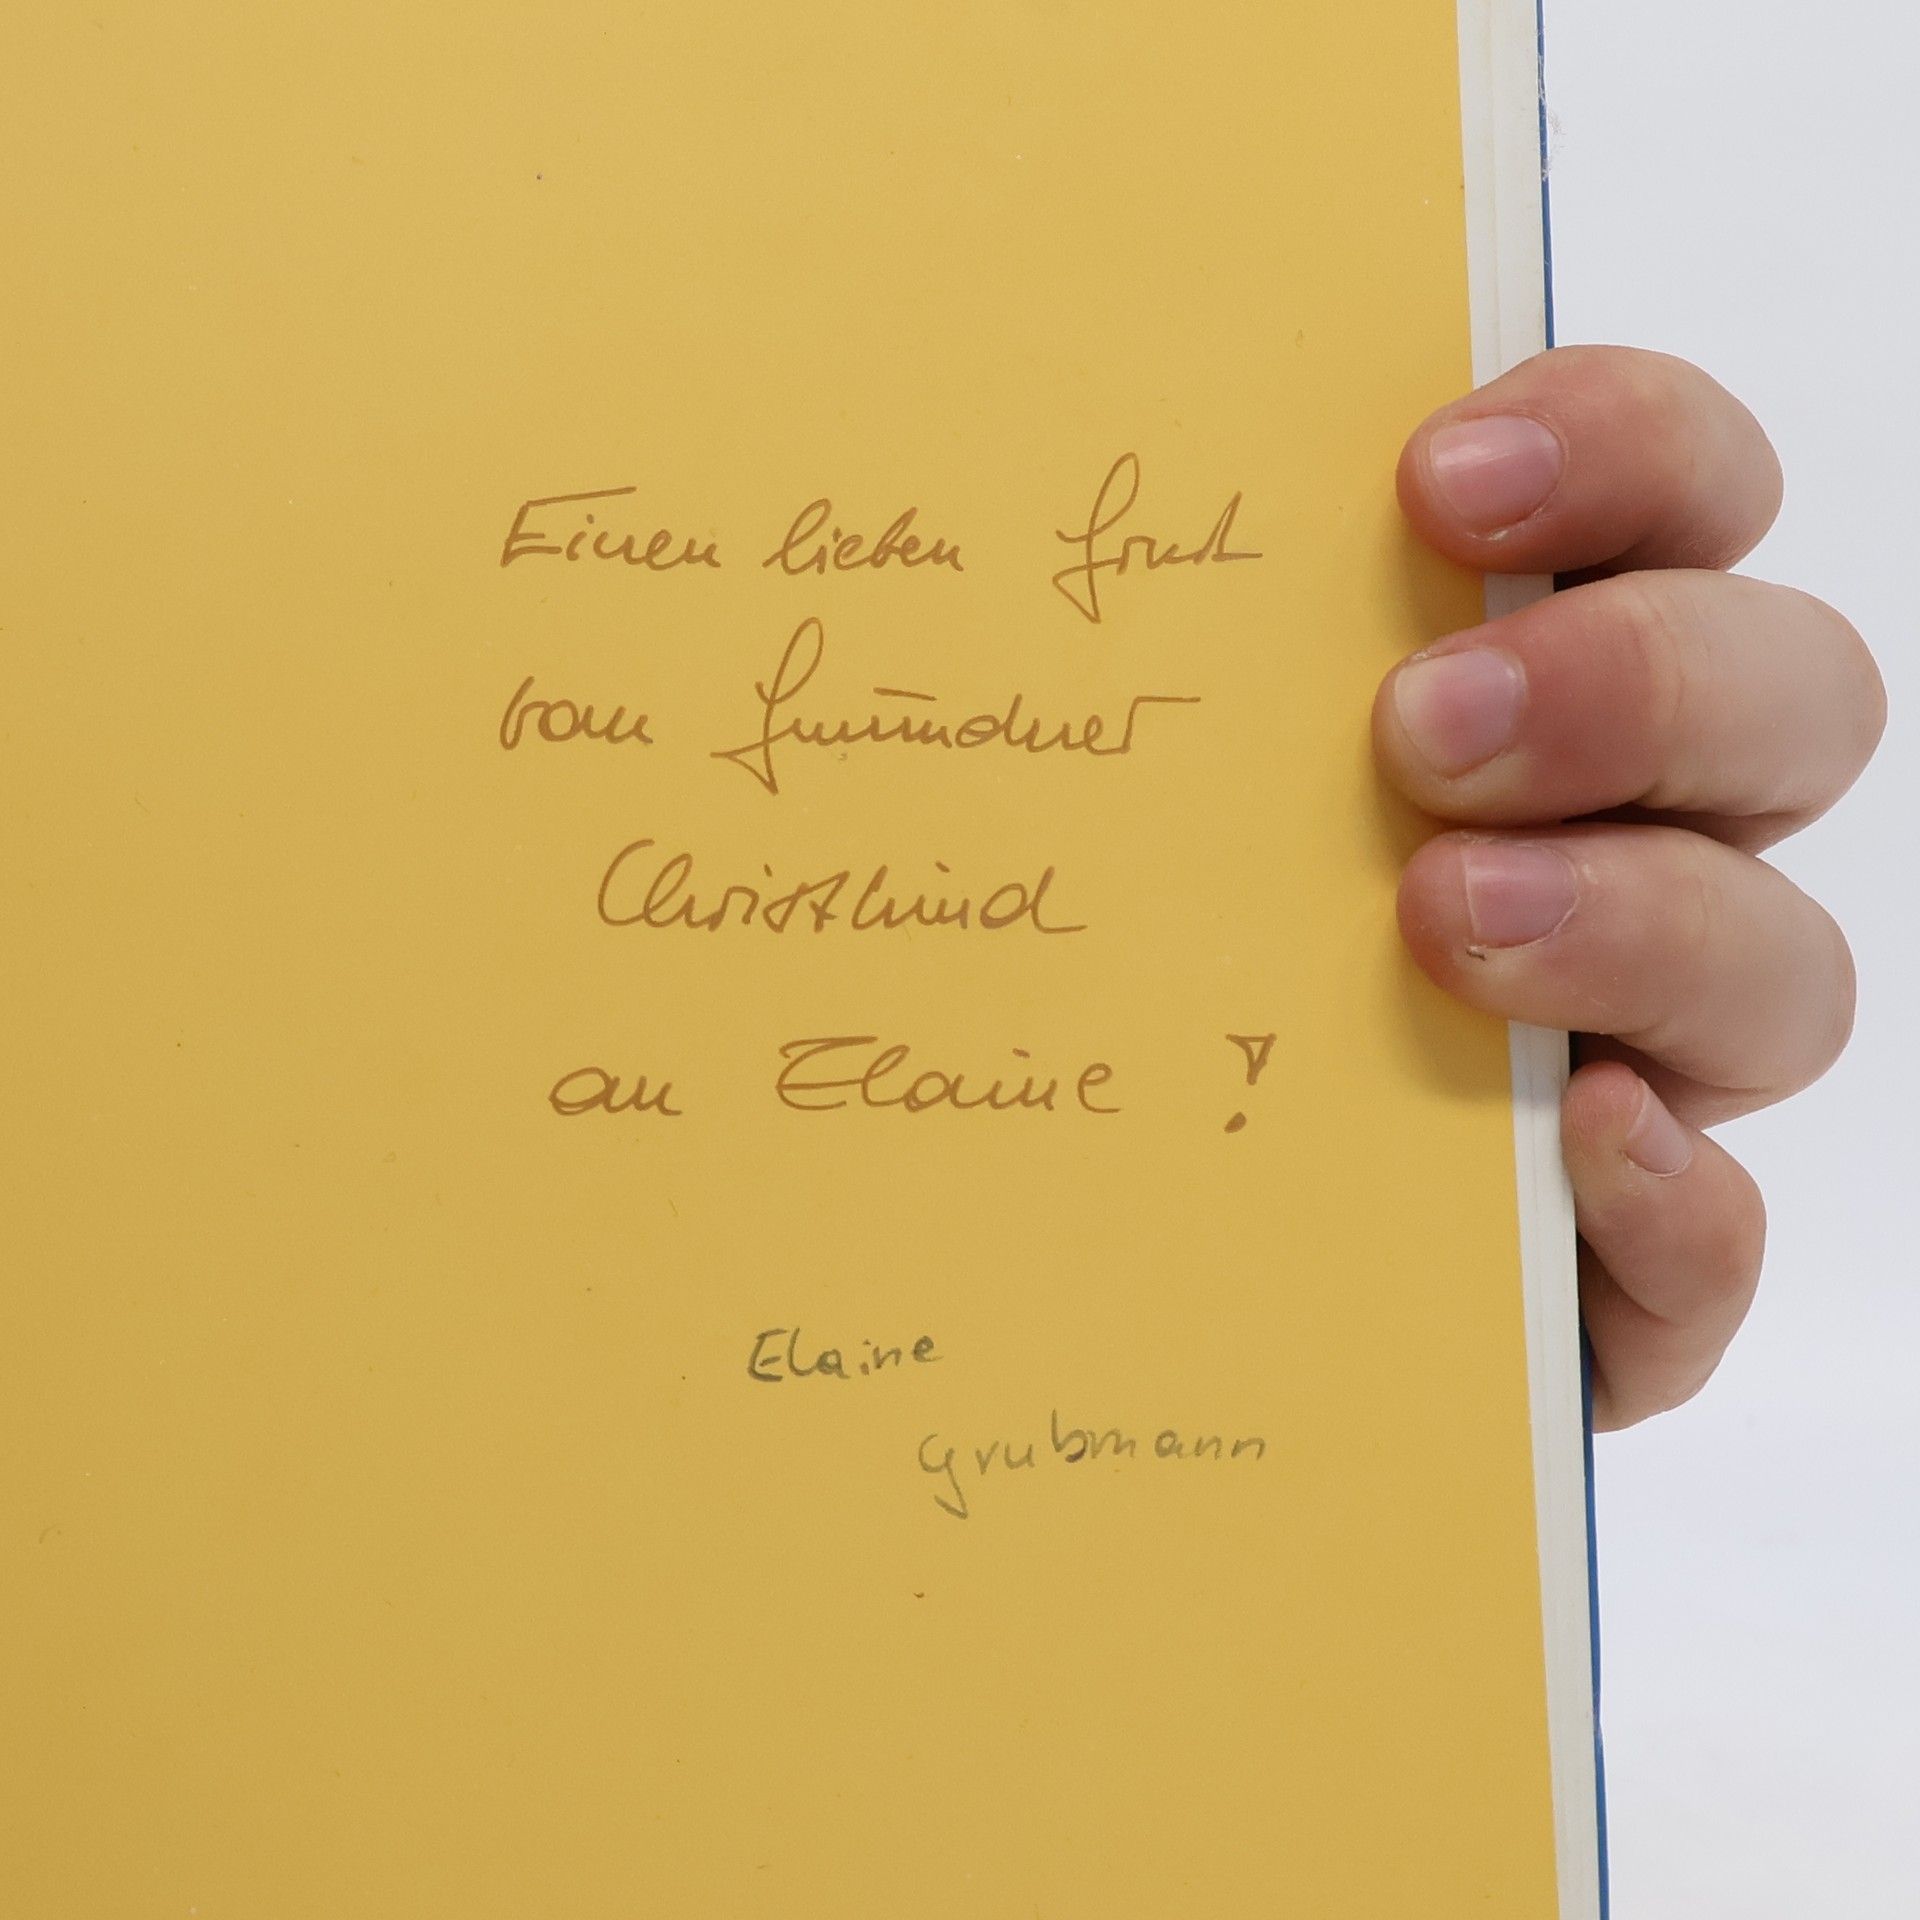 Einen lieben Gruß
vom Gmundner
Christkind
an Elaine !
Elaine
Grubmann